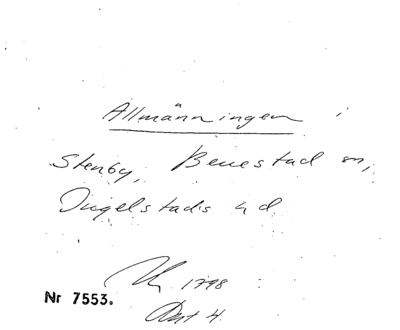 Allmänningen i
Stenby, Benestad sn,
Ingelstads hd.
1798
Nr 7553.
Akt 4.